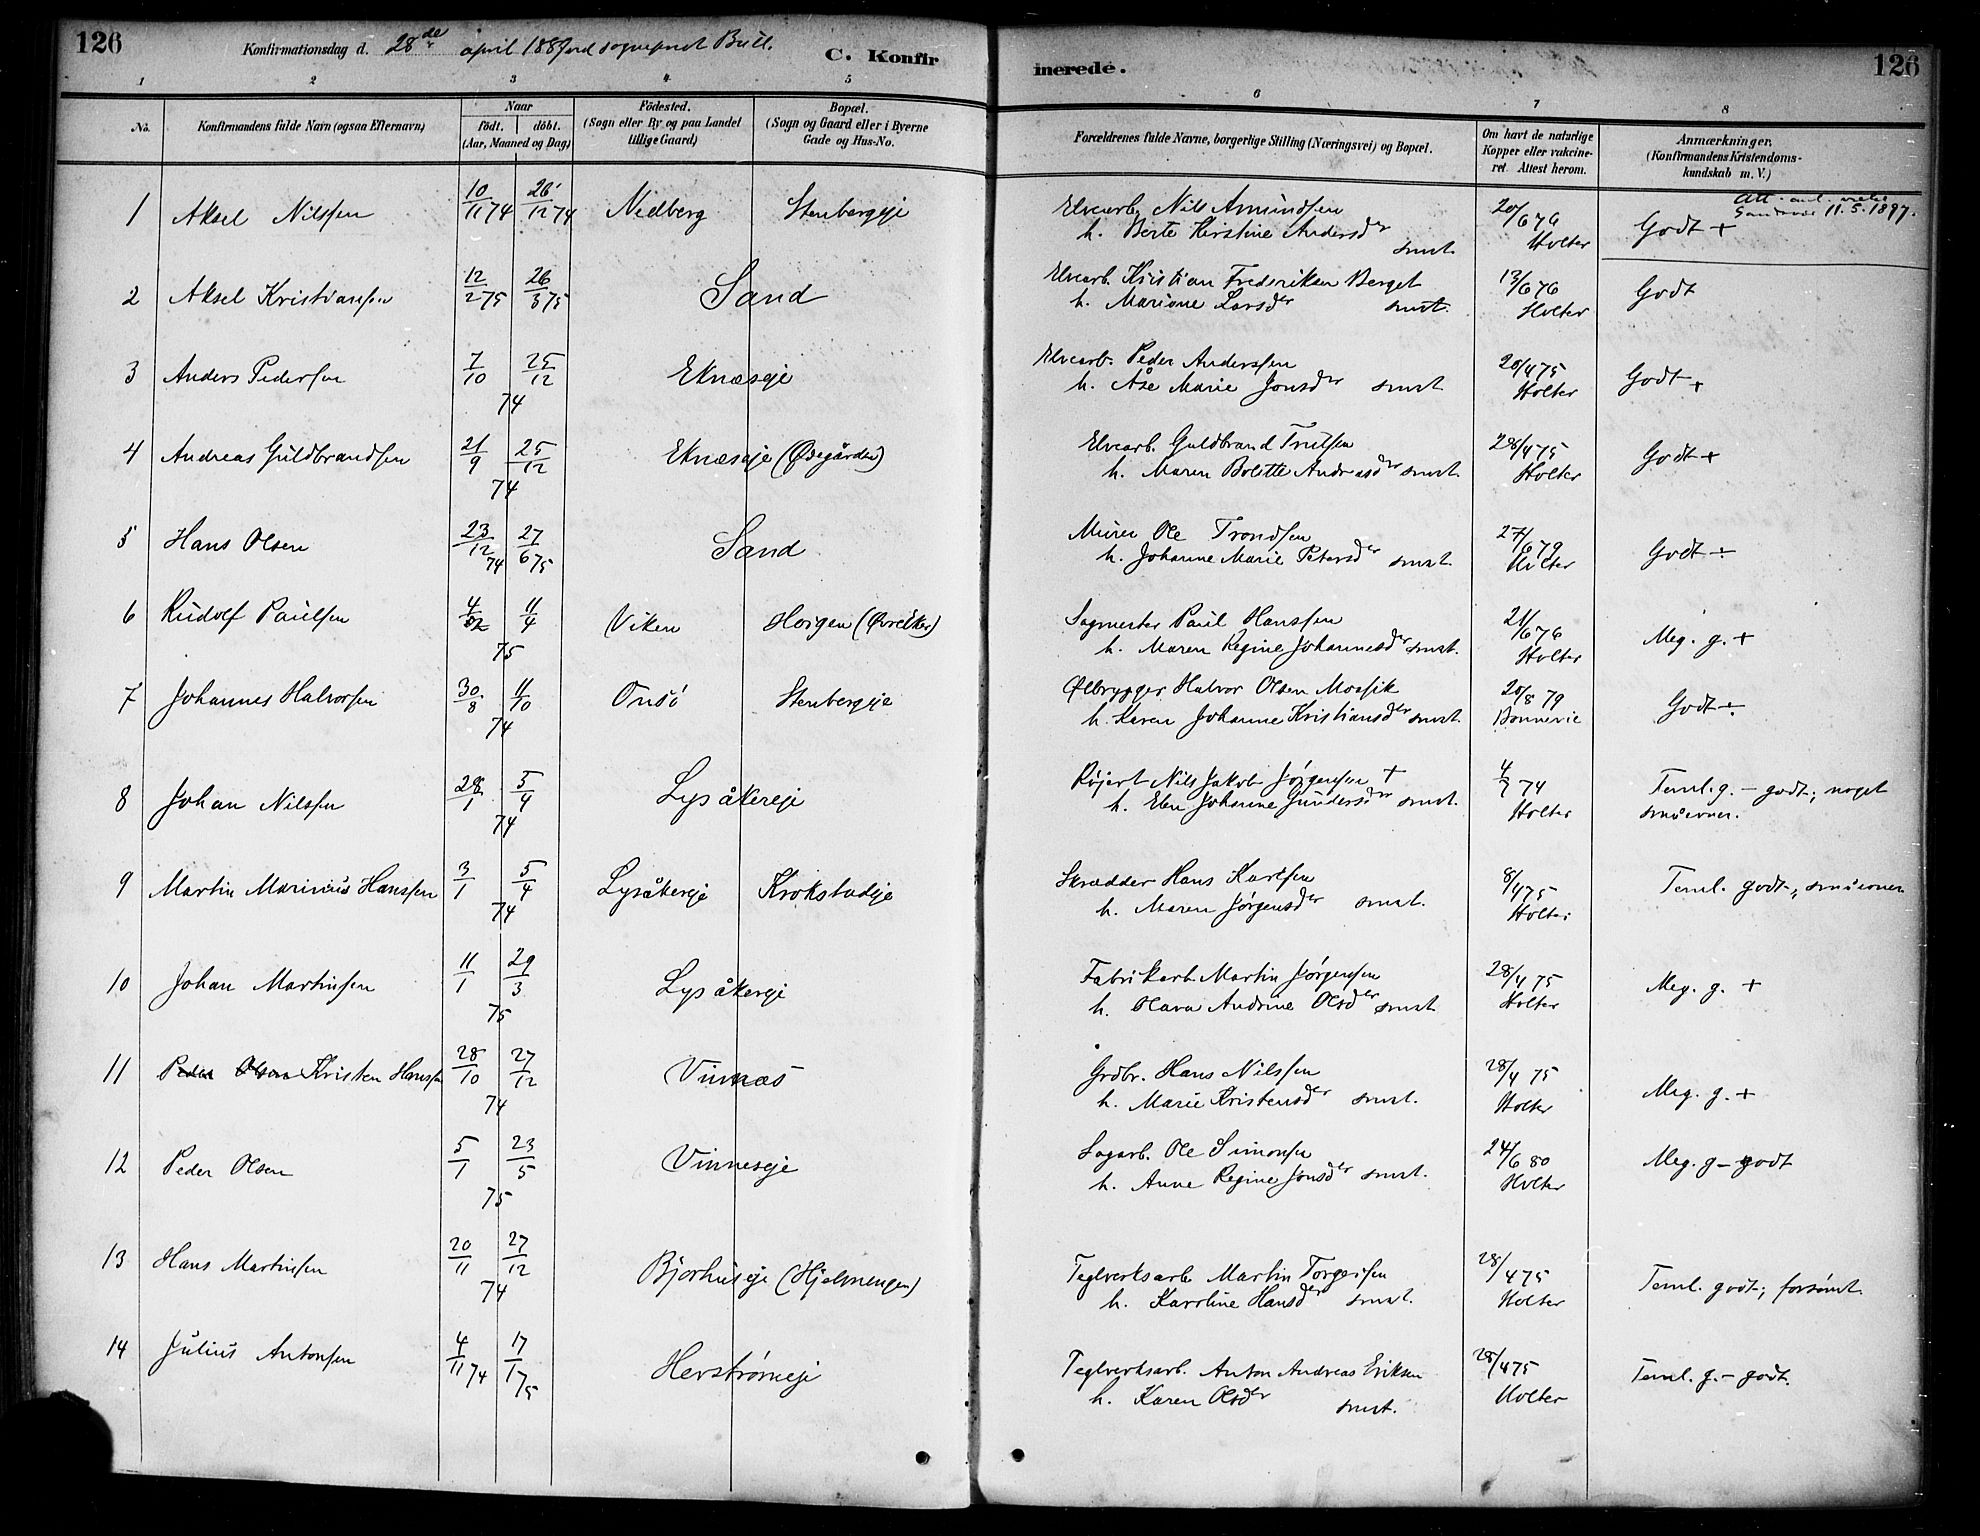 126
Konfirmationsdag d. 28de april 1889 ved sogneprest Bull.
C. Konfir
merede.
126
1 2 3 4 5 6 7 8
No.
Konfirmandens fulde Navn (ogsaa Efternavn)
Naar
födt. döbt.
(Aar, Maaned og Dag)
Födested.
(Sogn eller By og paa Landet
tillige Gaard)
Bopæl.
(Sogn og Gaard eller i Byerne
Gade og Hus-No.
Forældrenes fulde Navne, borgerlige Stilling (Næringsvei) og Bopæl.
Om havt de naturlige
Kopper eller vakcine-
ret. Attest herom.
Anmærkninger.
(Konfirmandens Kristendoms-
kundskab m. V.)
1 Aksel Nilssen 10/11 74 26/12 74 Nedberg Stenbergeje
Elvearb. Nils Amundsen 20/6 76
h. Berte Kirstine Andersder smst. Holter
Godt +
11.5.1897.
2 Aksel Kristiansen 12/2 75 26/3 75 Sand
Elvearb. Kristian Frederiksen Berget 13/6 76
h. Mariane Larsder smst. Holter
Godt
3 Anders Pedersen 7/10 25/12 74 Eknæseje
Elvearb. Peder Anderssen 20/4 75
h. Åse Marie Jonsder smst Holter
Godt +
4 Andreas Guldbrandsen 21/9 25/12 74 Eknæseje (Ødegården)
Elvearb. Guldbrand Trulsen 28/4 75
h. Maren Bolette Andreasder smst. Holter
Godt +
5 Hans Olsen 23/12 74 27/6 75 Sand
Murer Ole Trondsen 27/6 79
h. Johanne Marie Petersder smst. Holter
Godt ÷
6 Rudolf Paulsen 4/2 11/4 75 Viken Horgen (Øvreiker)
Sagmester Paul Hanssen 21/6 76
h. Maren Regine Johannesder smst. Holter
Meg. g. +
7 Johannes Halvorsen 30/8 11/10 74 Onsö Stenbergeje
Ølbrygger Halvor Olsen Mossik 20/8 79
h. Karen Johanne Kristiansder smst. Bonnevie
Godt ÷
8 Johan Nilssen 28/1 5/4 74 Lysåkereje
Röjert Nils Jakob Jørgensen + 4/7 74
h. Elen Johanne Gundersder smst. Holter
Teml. g. – godt; noget
9 Martin Marinius Hanssen 3/1 5/4 74 Lysåkereje Krokstadeje
Skrædder Hans Karlsen 8/4 75
h. Maren Jørgensder smst. Holter
Teml. godt;
10 Johan Martinsen 11/1 29/3 75 Lysåkereje
Fabrikarb. Martin Jørgensen 28/4 75
h. Olava Andrine Olsder smst Holter
Meg. g. +
11 Peder Olsen Kristen Hanssen 28/10 27/12 74 Vinnæs
Grdbr. Hans Nilssen 28/4 75
h. Marie Kristensder smst. Holter
Meg. g. +
12 Peder Olsen 5/1 23/5 75 Vinneseje
Sagarb. Ole Simonsen 24/6 80
h. Anne Regine Jonsder smst. Holter
Meg. g – godt
13 Hans Martinsen 20/11 27/12 74 Bjorhuseje (Hjelmengen)
Teglverksarb. Martin Torgersen 28/4 75
h. Karoline Hansder smst. Holter
Teml. godt; forsömt.
14 Julius Antonsen 4/11 74 17/1 75 Herströmeje
Teglverksarb. Anton Andreas Eriksen 28/4 75
h. Karen Olsder smst. Holter
Teml. g. – godt.